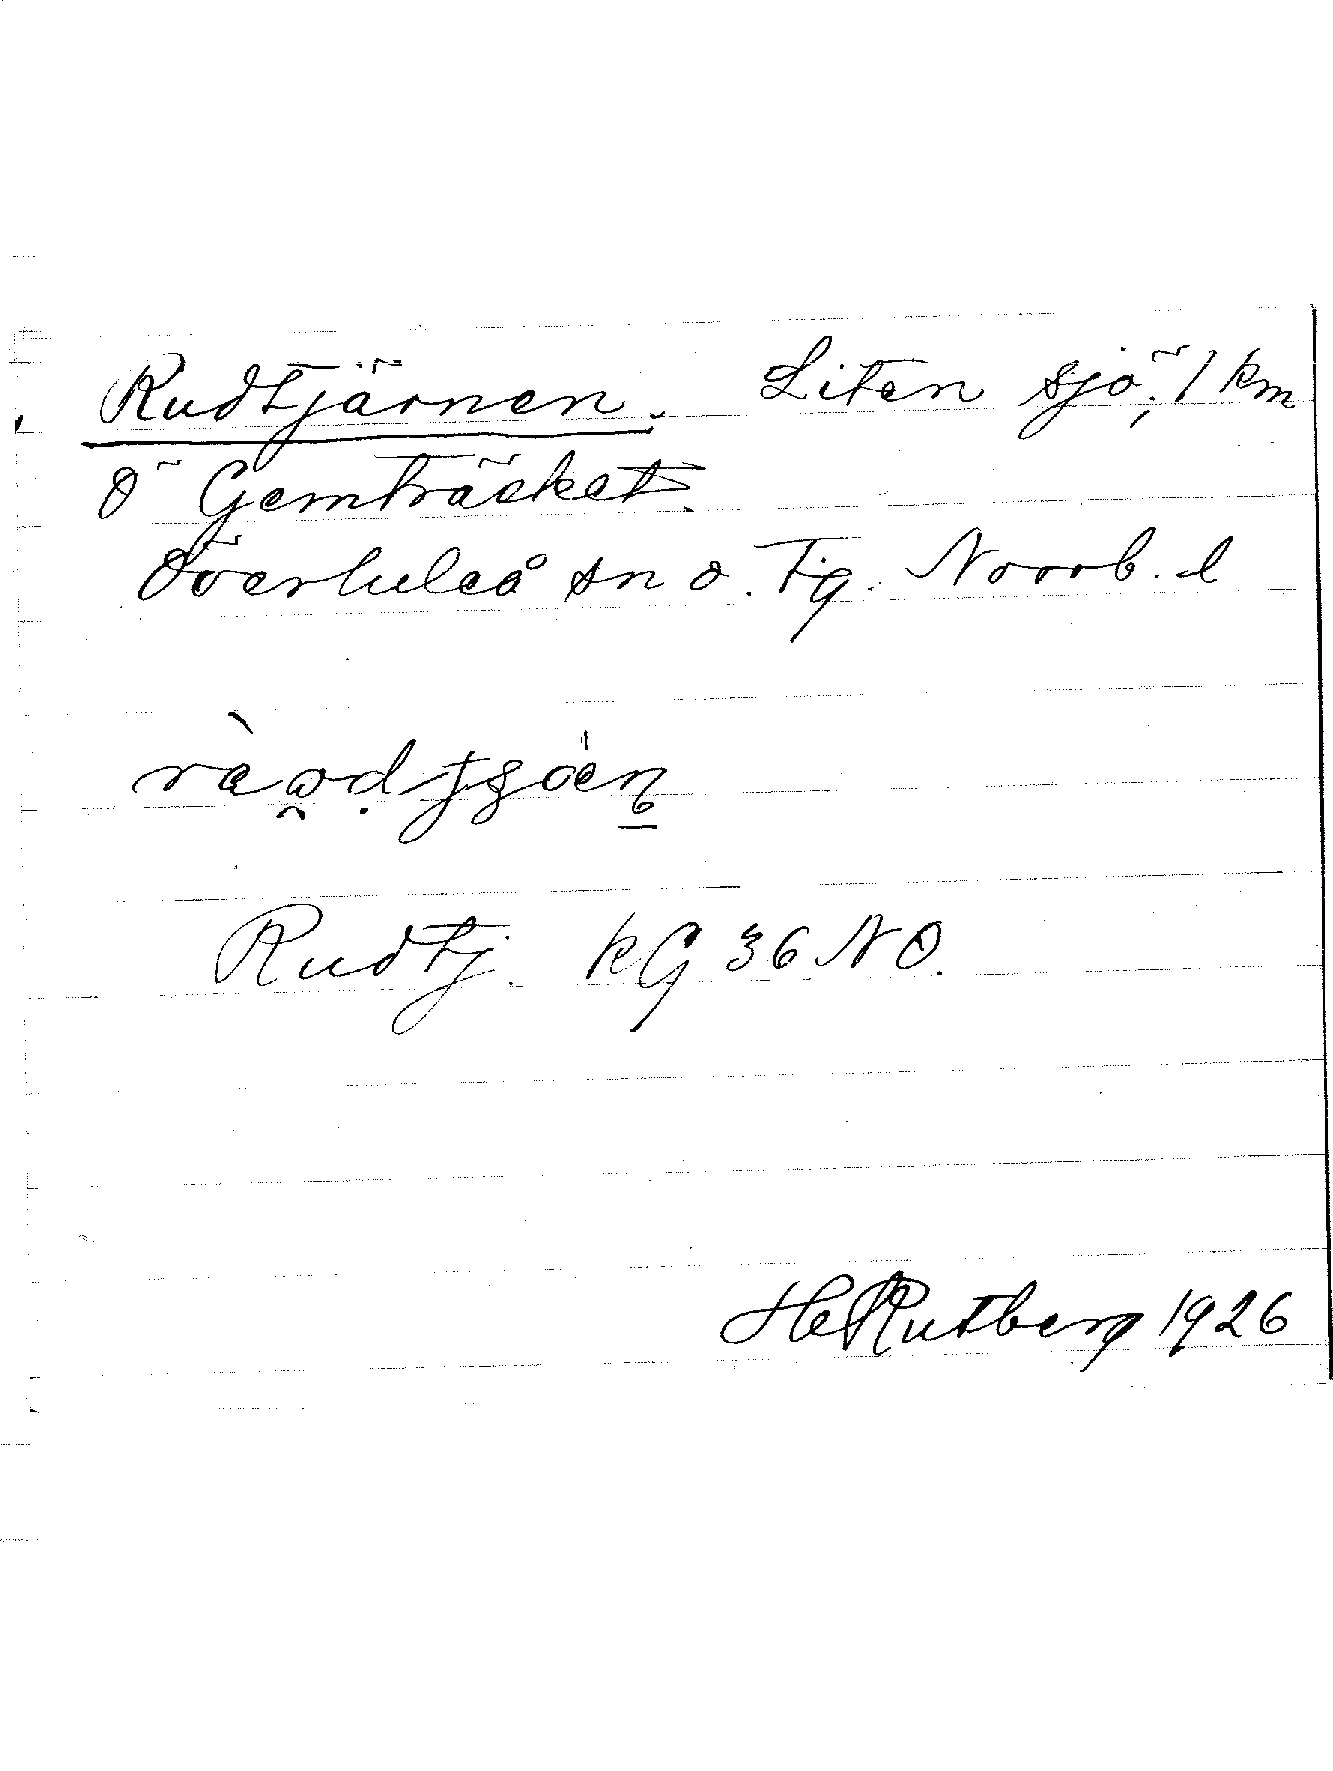 Rudtjärnen. Liten sjö, 1 km
Ö Gemträsket.
Överluleå sn o. Tg. Norrb. l
Rudtj. KG 36 NO.
H Rutberg 1926